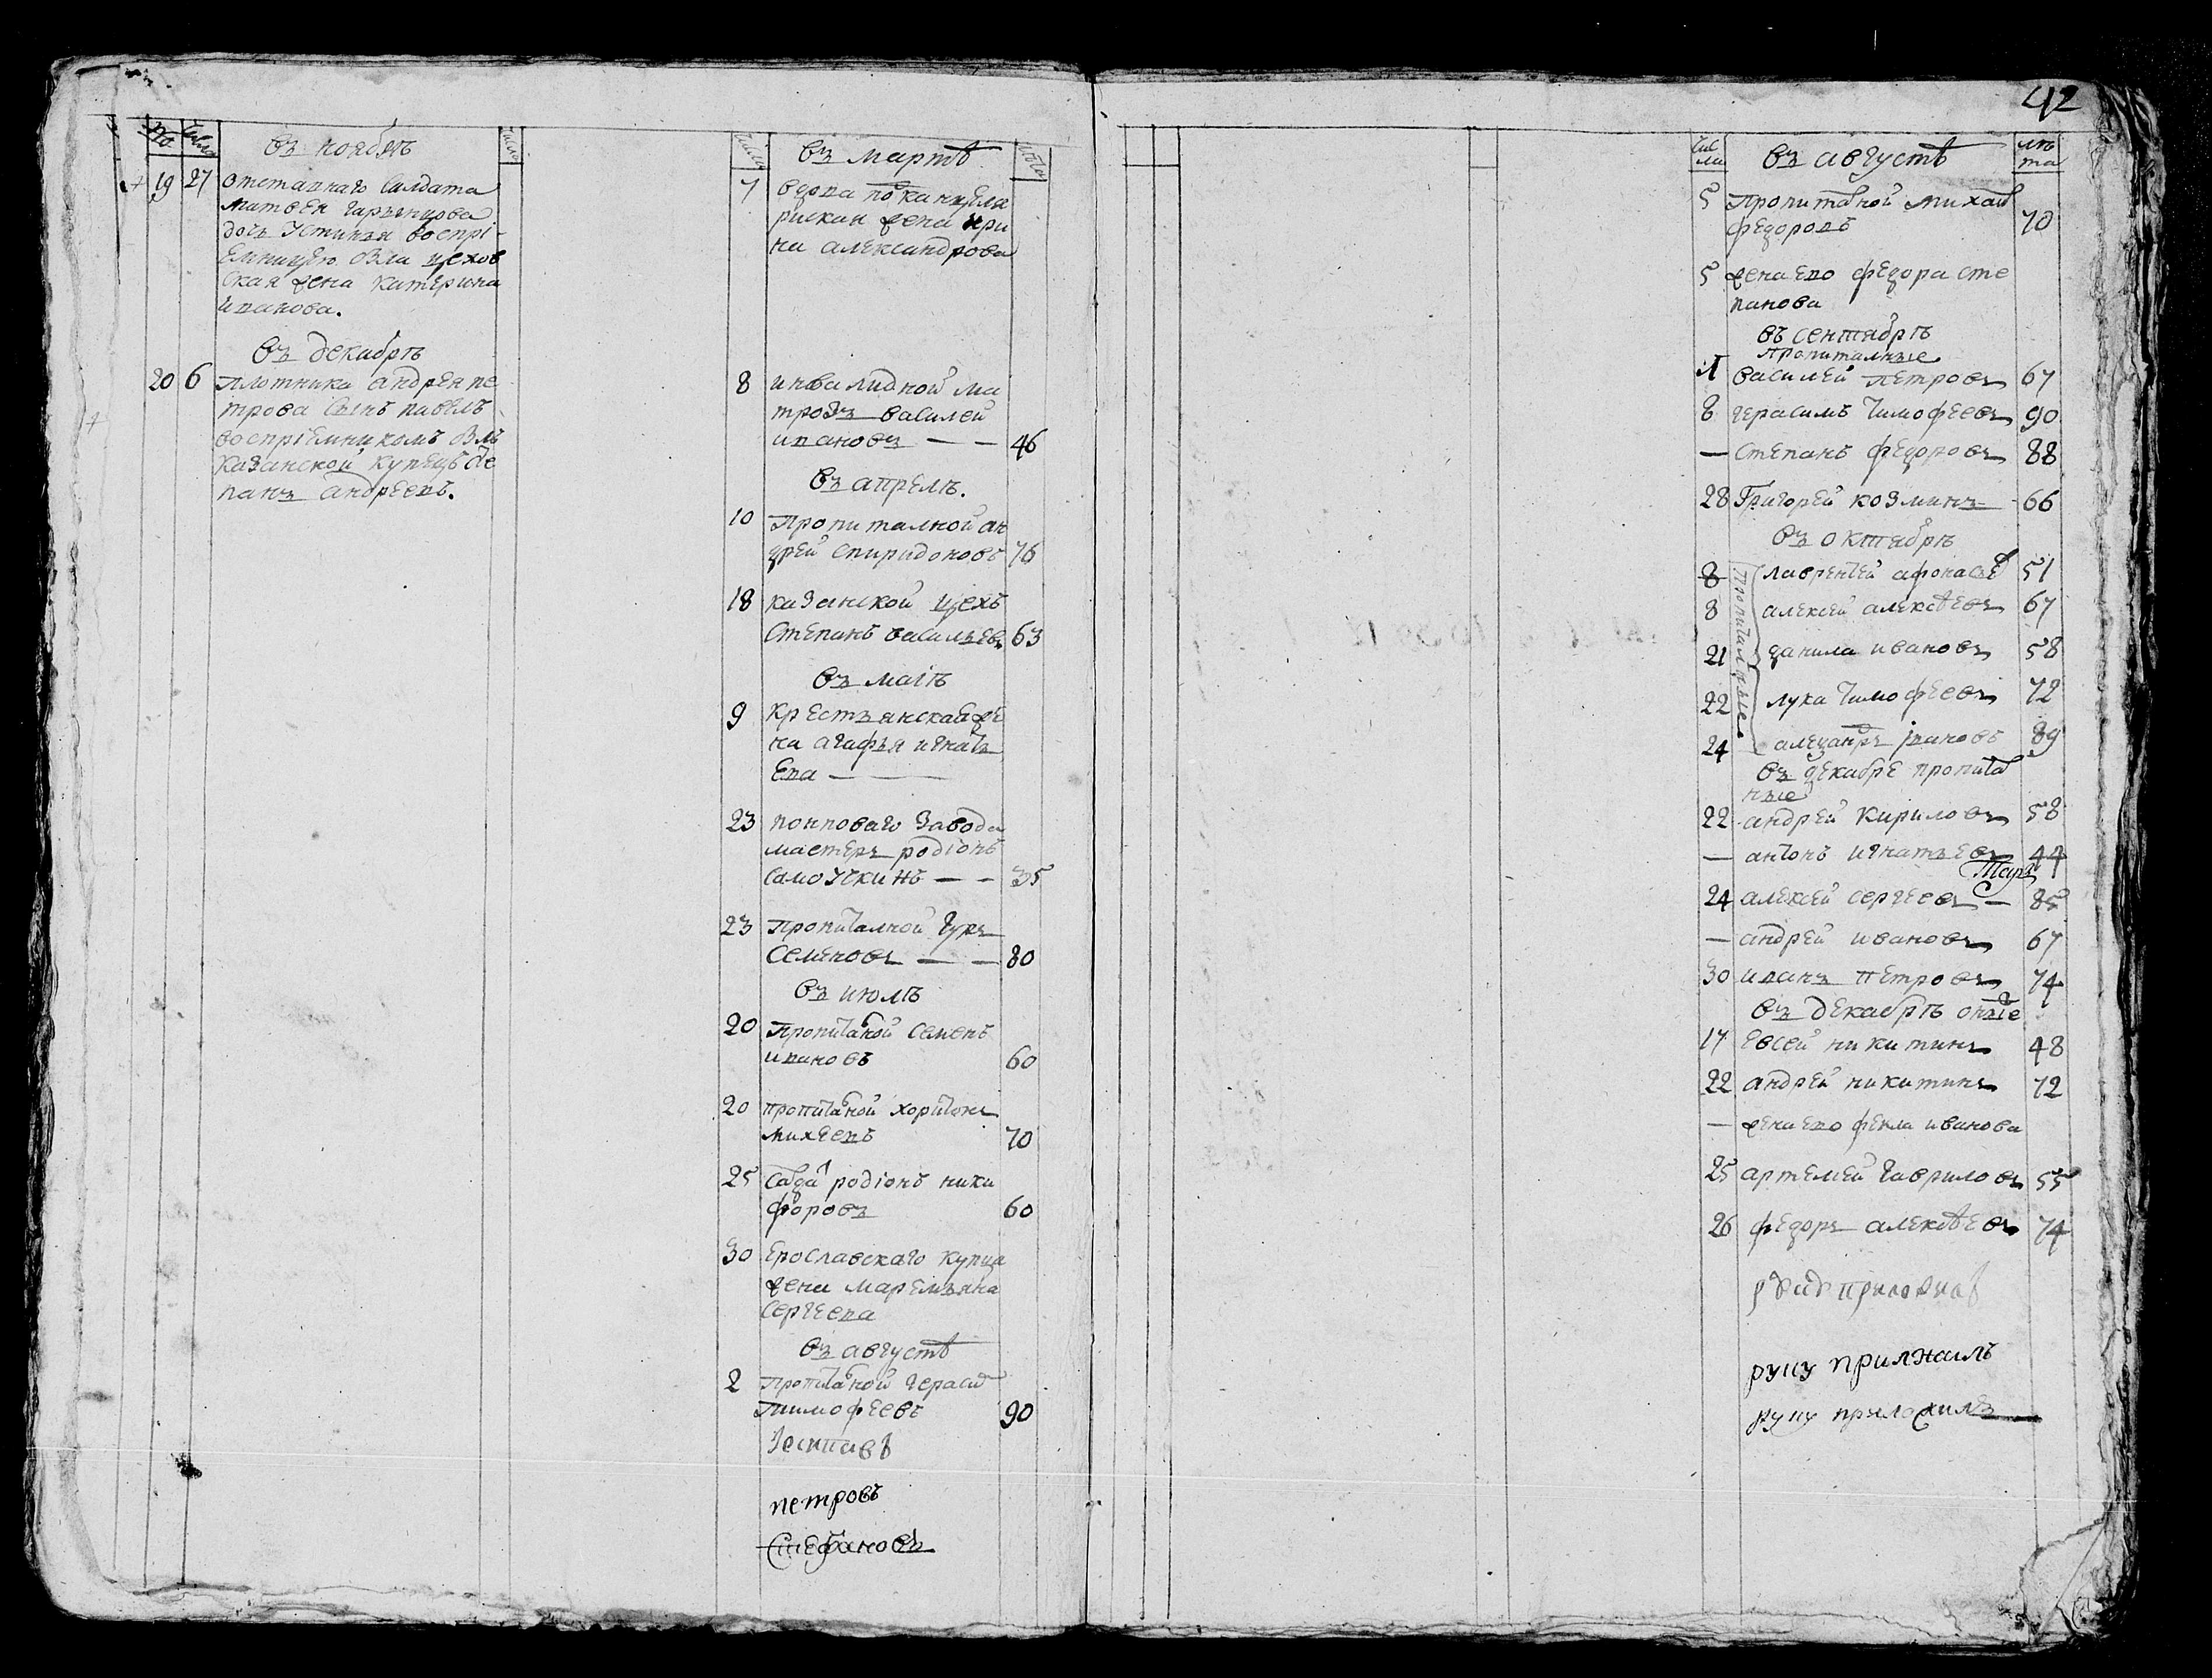 42
No
число
въ ноябрѣ
19 27 отставнаго салдата
матвея
дочь устинья воспрі-
емницею была цехов
ская жена катерина
иванова.
въ декабрѣ
20 6 плотника андрея пе
трова сынъ павелъ
воспріемникомъ былъ
казанской купецъ сте
панъ андреевъ.
число
число
въ мартѣ
лѣта
7
жена ири
на александрова
8 инвалидной ма
трозъ василей
ивановъ — — 46
въ апрелѣ.
10 Пропиталной ан
дрей спиридоновъ 76
18 казанской цехъ
степанъ васильевъ 63
въ маіѣ
9 крестьянская же
на агафья игнать
ева —
23 заводу
мастеръ родіонъ
самоучкинъ — — 35
23 Пропиталной гуръ
семеновъ — — 80
въ июлѣ
20 Пропиталной семенъ
ивановъ 60
20 пропиталной харитонъ
михеевъ 70
25 салдатъ родіонъ ники
форовъ 60
30 Ерославскаго купца
жена маремьяна
сергеева
въ августѣ
2 Пропиталной герасимъ
тимофеевъ 90
петровъ
Стефановъ
числа
въ августѣ
лѣта
5 Пропиталной михаилъ
федоровъ 70
5 жена ево федора сте
панова
въ сентябрѣ
пропиталные
василей петровъ 67
8 герасимъ тимофеевъ 90
— степанъ федоровъ 88
28 Григорей козминъ 66
въ октябрѣ
пропиталные
8 лаврентей афонасьевъ 51
8 алексей алексѣевъ 67
21 данила ивановъ 58
22 лука тимофеевъ 72
24 александръ івановъ 89
въ декабре пропитал
ные
22 андрей кириловъ 58
— антонъ игнатьевъ 44
24 алексей сергеевъ — 85
— андрей ивановъ 67
30 иванъ петровъ 74
въ декабрѣ оные
17 евсей никитинъ 48
22 андрей никитинъ 72
— жена ево фекла иванова
25 артемей гавриловъ 55
26 федоръ алексѣевъ 74
руку прилжилъ
руку приложилъ